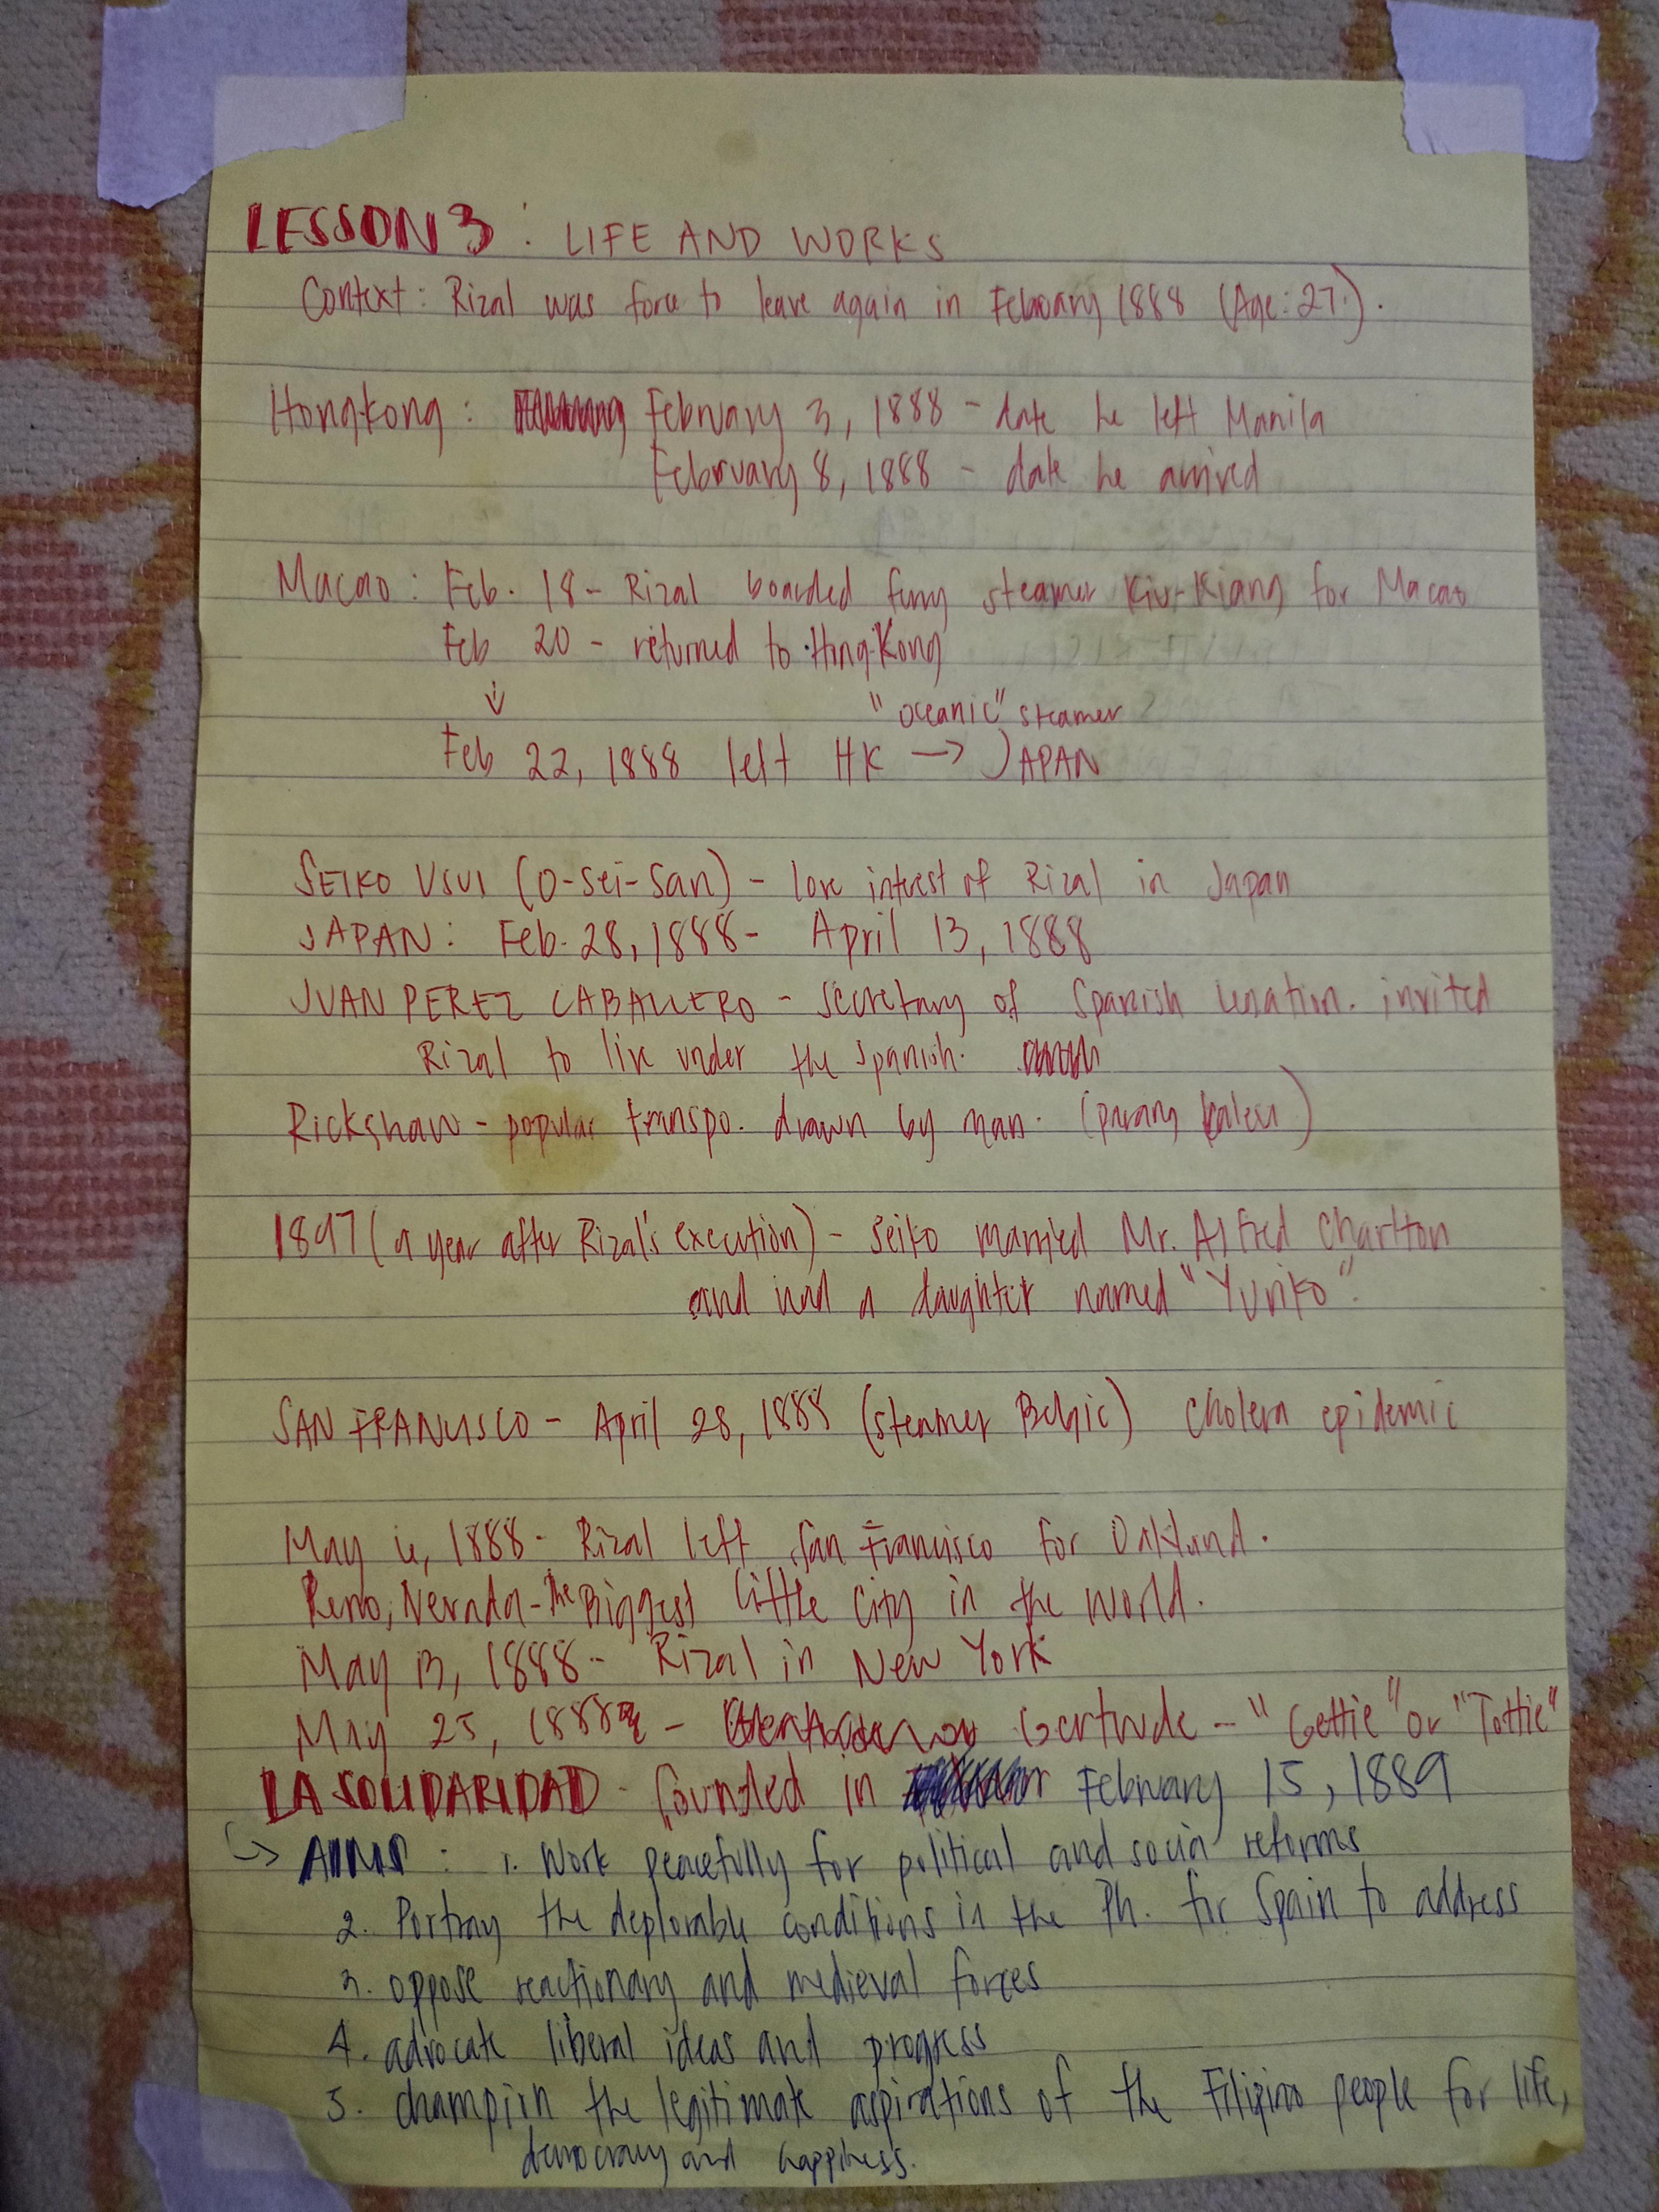 LESSON 3 : LIFE AND WORKS
Context: Rizal was force to leave again in February 1888 (Age: 27.).
Hongkong : February 3, 1888 - date he left Manila
February 8, 1888 - date he arrived
Macao : Feb. 18 - Rizal boarded ferry steamer Kiu-Kiang for Macao
Feb 20 - returned to HongKong
"oceanic" steamer
Feb 22, 1888 left HK → JAPAN
SEIKO USUI (O-Sei-San) - love interest of Rizal in Japan
JAPAN: Feb. 28, 1888 - April 13, 1888
JUAN PEREZ CABALLERO - secretary of Spanish invited
Rizal to live under the Spanish.
Rickshaw - popular transpo. drawn by man. (parang kalesa)
1897 (a year after Rizal's execution) - Seiko married Mr. Alfred Charlton
and had a daughter named "Yuriko".
SAN FRANCISCO - April 28, 1888 (steamer Belgic) cholera epidemic
May 6, 1888 - Rizal left San Francisco for Oakland.
Reno, Nevada - The Biggest Little City in the World.
May 13, 1888 - Rizal in New York
May 25, 1888 - Gertrude - "Gettie" or "Tottie"
LA SOLIDARIDAD - founded in February 15, 1889
↳ AIMS : 1. Work peacefully for political and social reforms
2. Portray the deplorable conditions in the Ph. for Spain to address
3. oppose reactionary and medieval forces
4. advocate liberal ideas and progress
5. champion the legitimate aspirations of the Filipino people for life,
democracy and happiness.